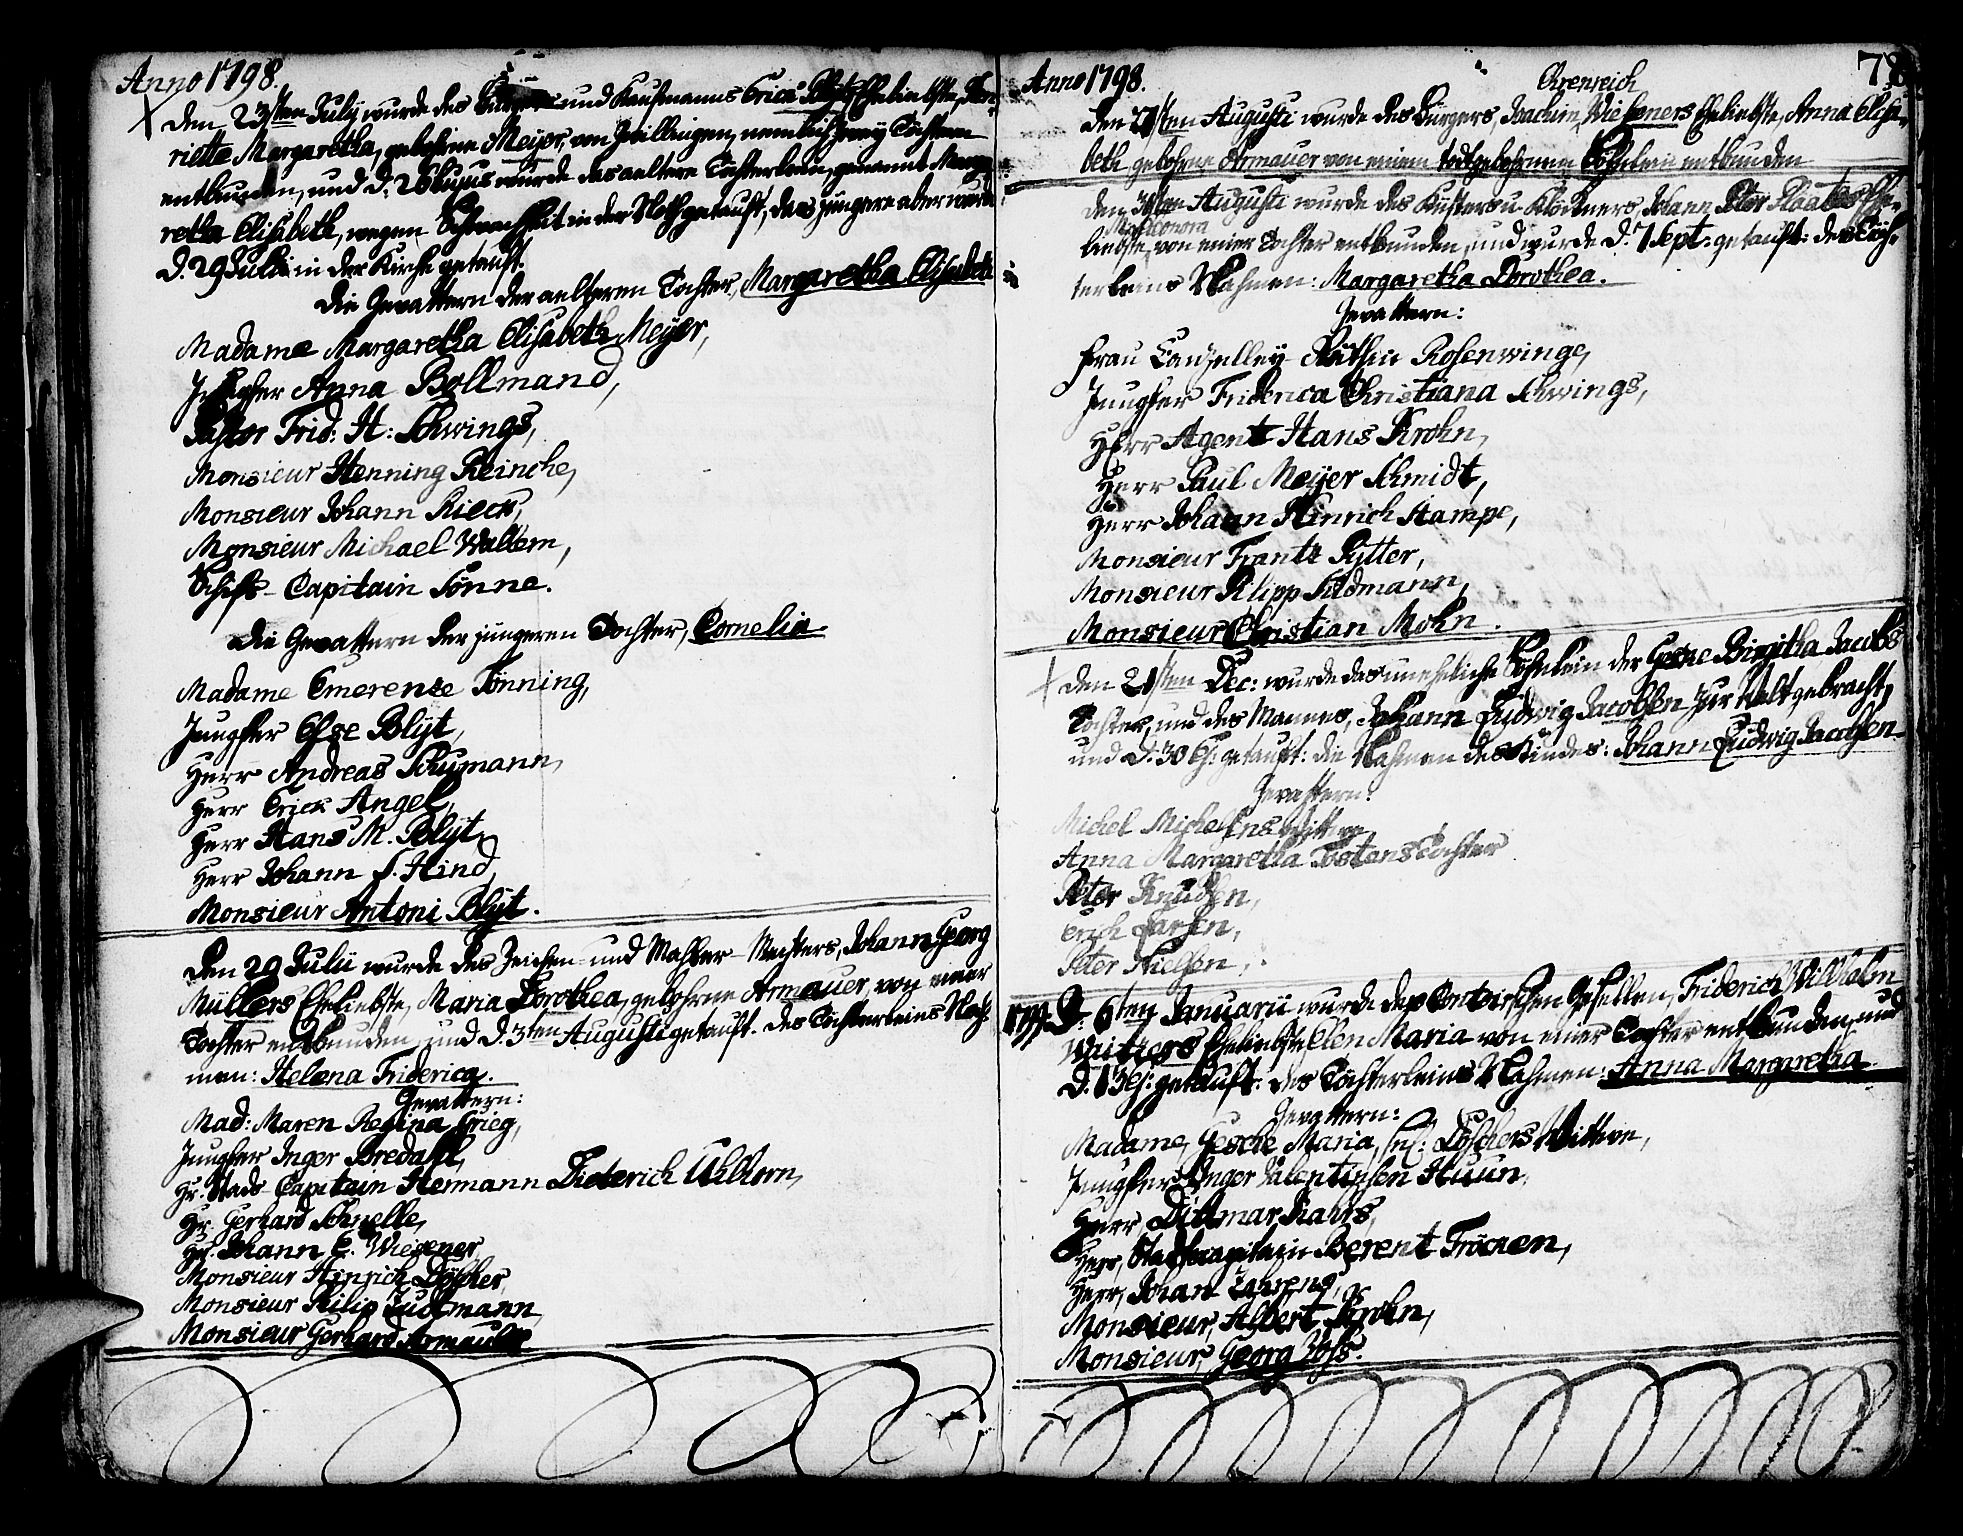 Anno 1798.
Den 23sten July wurde des Bürgers und Kaufmanns Erich Blyts Eheliebste, Hen-
riette Margaretha, gebohrne Meyer, von Zwillingen, nemlich zwey Töchtern
entbunden, und d. 26 hujus wurde das aeltere Töchterlein, genannt Marga-
retha Elisabeth, wegen Schwachheit in der Noth getauft, das jüngere aber wurde
d. 29 Julii in der Kirche getauft.
Die Gevattern der aelteren Tochter, Margaretha Elisabeth
Madame Margaretha Elisabeth Meyer,
Jungfer Anna Bollmand,
Pastor Frid: H: Schwings,
Monsieur Henning Reinche,
Monsieur Johann Rieck,
Monsieur Michael Wallem,
Schifs-Capitain Tönne.
Die Gevattern der jüngeren Tochter, Cornelia.
Madame Emerense Tönning,
Jungfer Else Blyt,
Herr Andreas Schumann,
Herr Erick Angel,
Herr Hans M. Blyt,
Herr Johann S. Hind,
Monsieur Antoni Blyt.
Den 29 Julii wurde des Zeichen- und Mahler-Meisters, Johann Georg
Müllers Eheliebste, Maria Dorothea, gebohrne Armauer, von einer
Tochter entbunden, und d. 3ten Augusti getauft. des Töchterleins Nah-
men: Helena Friderica.
Gevattern:
Mad: Maren Regina Grieg,
Jungfer Inger Bredahl,
Hr. Stads-Capitain Hermann Dieterich Uhlhorn,
Hr. Gerhard Schnelle,
Hr. Johann E. Wiesener,
Monsieur Hinrich Döscher,
Monsieur Philip Ludtmann,
Monsieur Gerhard Armauer
78
Anno 1798.
Ehrenreich
Den 21sten Augusti wurde des Bürgers, Joachim Wieseners Eheliebste, Anna Elisa-
beth gebohrne Armauer von einem todtgebohrnen Söhnlein entbunden
Den 31sten Augusti wurde des Küsters u. Klöckners, Johann Peter Plaates Ehe-
liebste, von einer Tochter entbunden, und wurde d. 7 Sept: getauft: des Töch-
terleins Nahmen: Margaretha Dorothea.
Gevattern:
Frau Canzelley-Räthin Rosenwinge,
Jungfer Friderica Christiana Schwings,
Herr Agent Hans Krohn,
Herr Paul Meyer Schmidt,
Herr Johann Hinrich Stampe,
Monsieur Frantz Rytter,
Monsieur Philipp
Monsieur Christian Mohn.
Den 21sten Dec: wurde das uneheliche Söhnlein der Gesne Birgitha Jacobs
Tochter, und des Mannes, Johann Ludwig Jacobsen zur Welt gebracht,
und d. 30 ej: getauft: die Nahmen des Kindes: Johann Ludwig Jacobsen.
Gevattern:
Michel Michelsens Wittwe,
Anna Margaretha Tostens Tochter
Peter Knudsen,
Erich Larsen,
Peter Nielsen,
1799. D. 6ten Januarii wurde des Contoirschen Gesellen, Friderich Wilhelm
Waitzers Eheliebste Elen Maria von einer Tochter entbunden, und
d. 13 ej: getauft: des Töchterleins Nahmen: Anna Margaretha
Gevattern:
Madame, Gesche Maria, sel: Döschers Wittwe,
Jungfer Inger Valentinsen Huun,
Herr Dittmar Kahrs,
Herr, Stadtcapitain Berent Fröchen,
Herr, Johan Fahreng,
Monsieur, Albert Krohn,
Monsieur, Georg Voss.